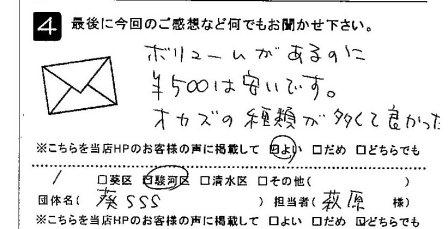 4 最後に今回のご感想など何でもお聞かせ下さい。
ボリュームがあるのに
¥500は安いです。
オカズの種類が多くて良かった
※こちらを当店HPのお客様の声に掲載して ☑よい □だめ □どちらでも
□葵区 ☑駿河区 □清水区 □その他( )
団体名( 葵SSS ) 担当者( 萩原 様)
※こちらを当店HPのお客様の声に掲載して □よい □だめ ☑どちらでも